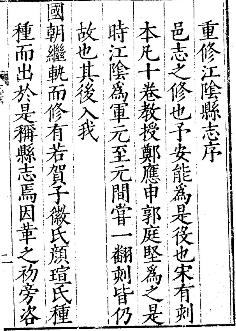 重修江陰縣志序
邑志之修也予安能為是後也宋有刺
本凡十卷教授鄭應申郭庭堅為之是
時江陰為軍元至元間嘗一翻刺皆仍
故也其後入我
國朝繼軌而修有若賀子徽氏顏瑄氏種
種而出於是稱縣志焉因革之礽旁洛